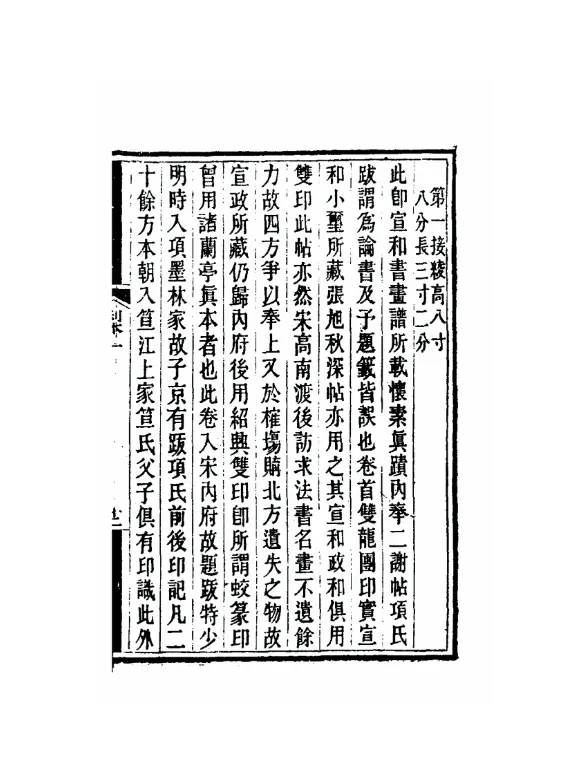 第一接綾高八寸
八分長三寸二分
此卽宣和書畫譜所載懷素眞蹟內奉二謝帖項氏
跋謂爲論書及予題籤皆誤也卷首雙龍團印實宣
和小璽所藏張旭秋深帖亦用之其宣和政和俱用
雙印此帖亦然宋高南渡後訪求法書名畫不遺餘
力故四方爭以奉上又於榷塲購北方遺失之物故
宣政所藏仍歸內府後用紹興雙印卽所謂蛟篆印
曾用諸蘭亭眞本者也此卷入宋內府故題跋特少
明時入項墨林家故子京有跋項氏前後印記凡二
十餘方本朝入笪江上家笪氏父子俱有印識此外